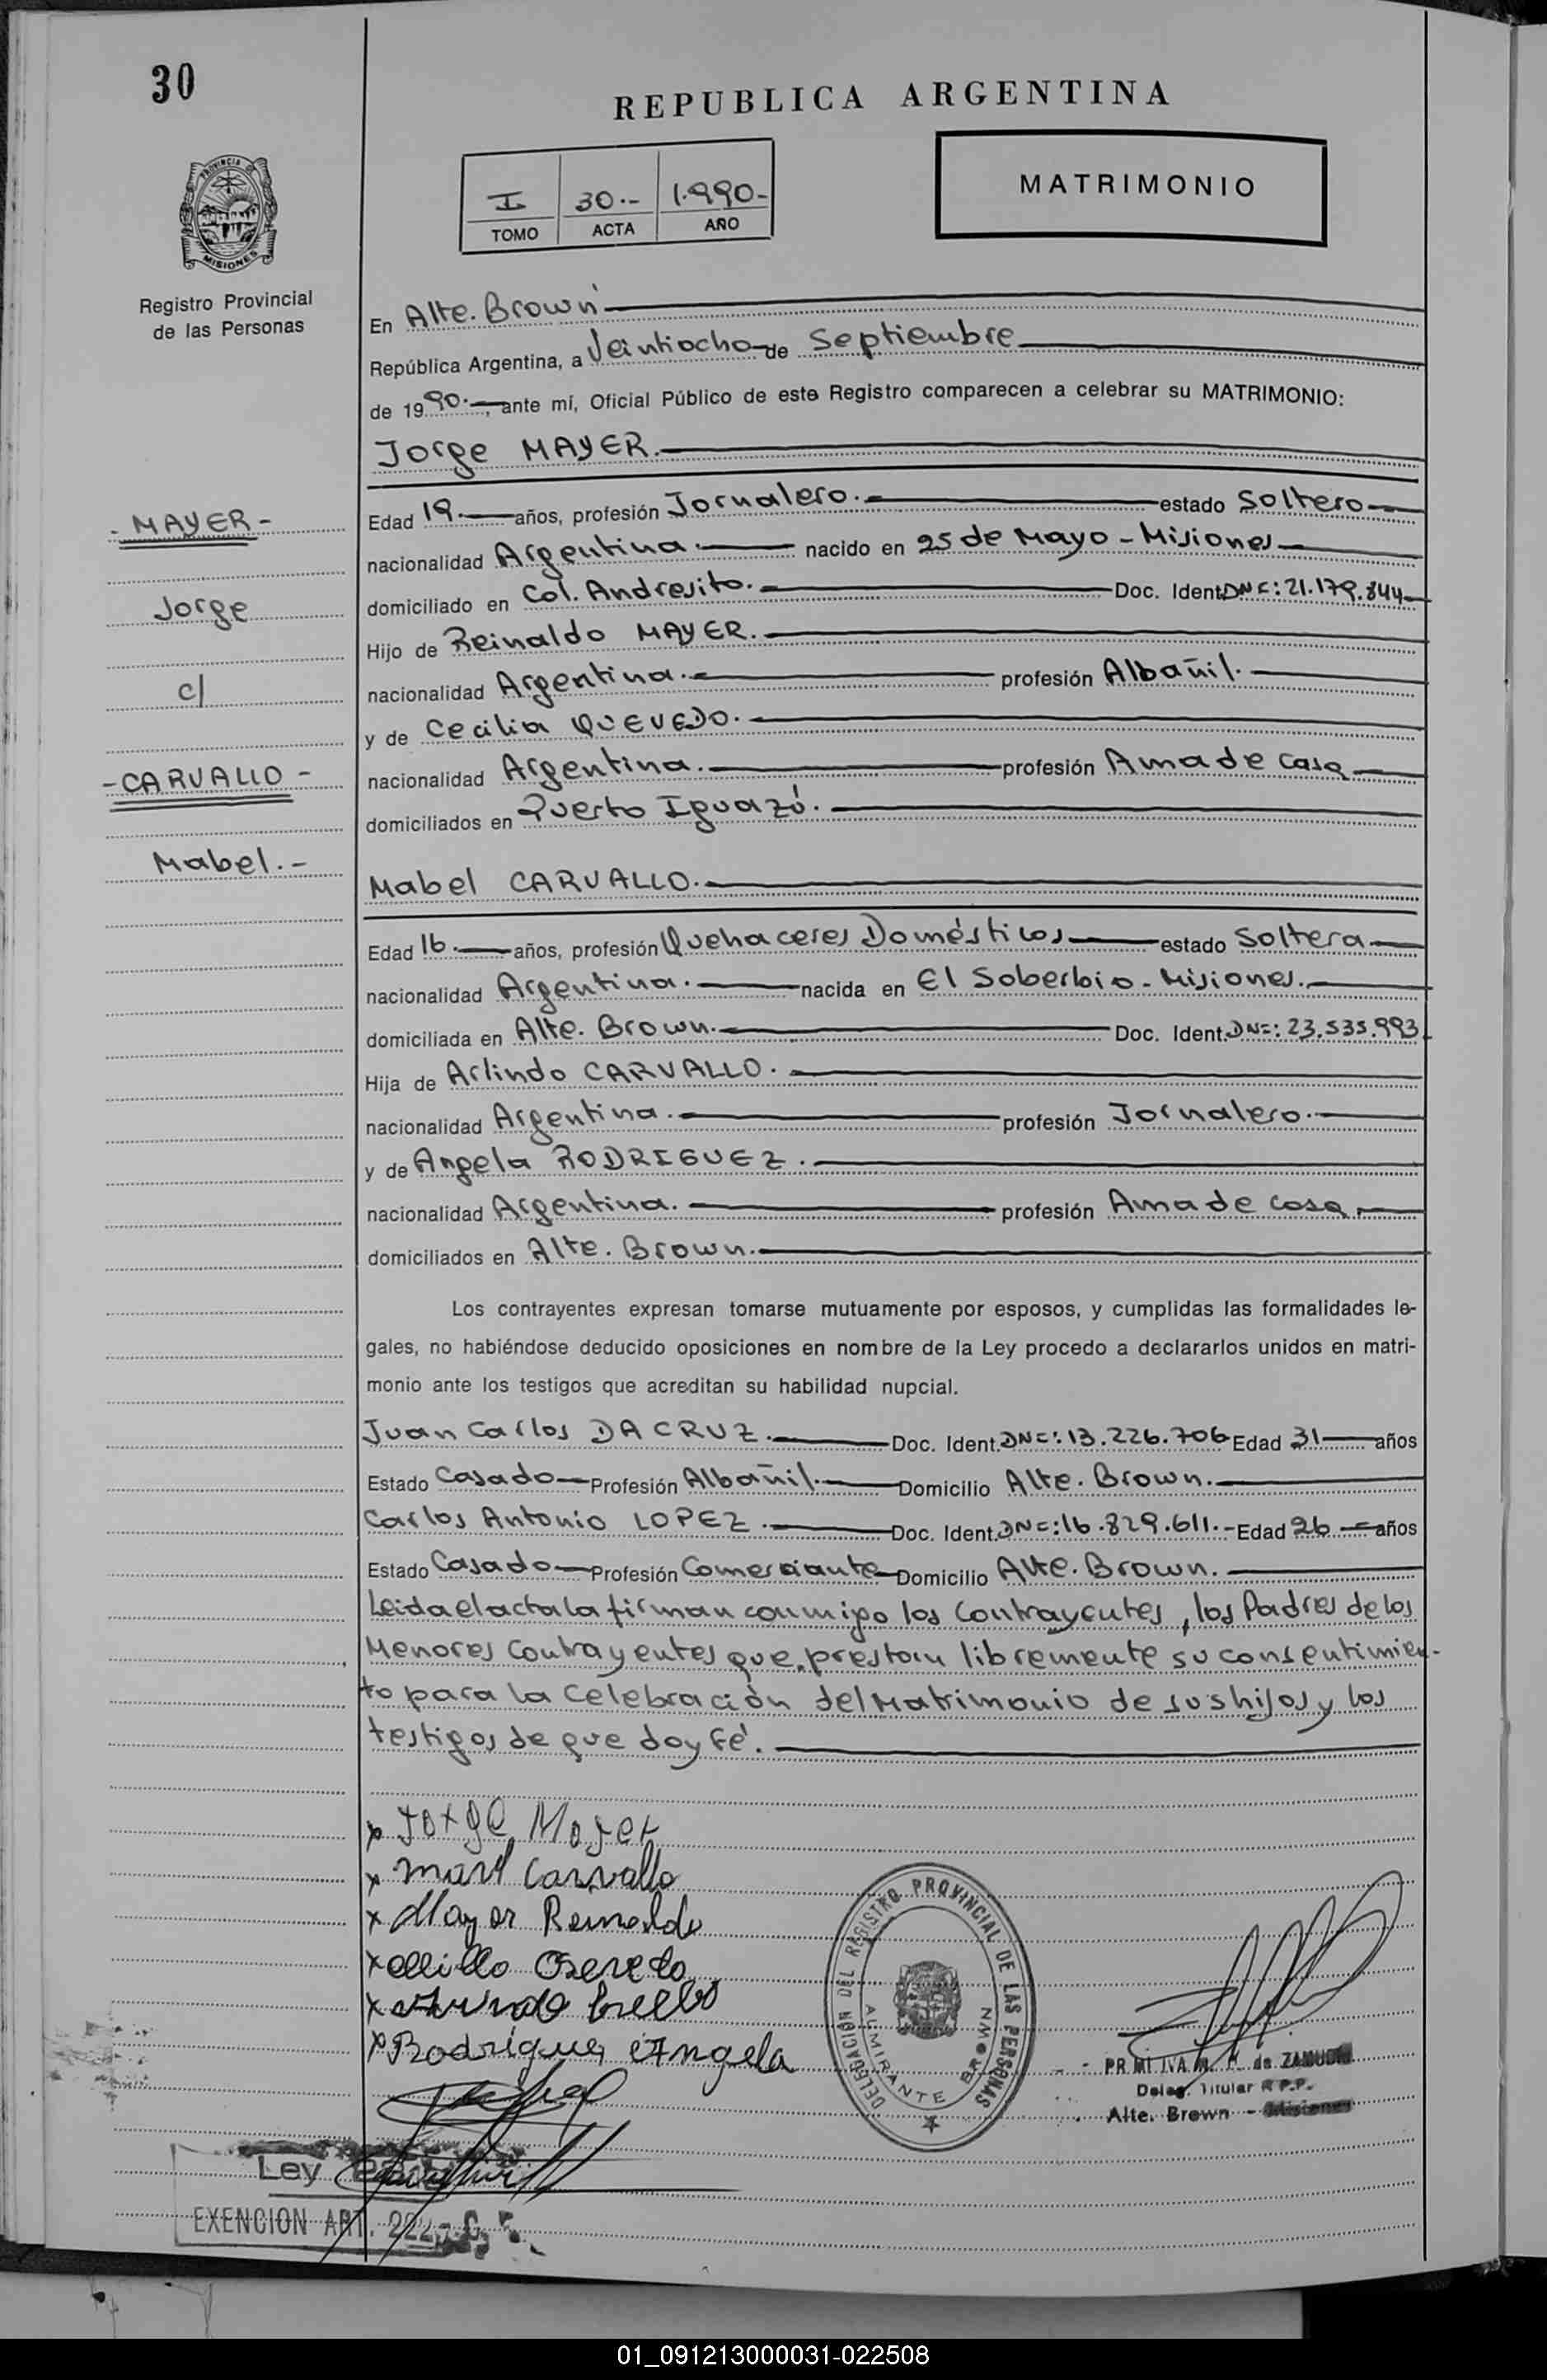 30
REPUBLICA ARGENTINA
I 30.- 1.990-
TOMO ACTA AÑO
MATRIMONIO
PROVINCIA DE
MISIONES
Registro Provincial
de las Personas
En Alte. Brown
República Argentina, a Veintiocho de Septiembre
de 1990.-, ante mí, Oficial Público de este Registro comparecen a celebrar su MATRIMONIO:
Jorge MAYER.
- MAYER -
Edad 19.- años, profesión Jornalero. estado Soltero
nacionalidad Argentina. nacido en 25 de Mayo - Misiones
Jorge
domiciliado en Col. Andresito. Doc. Ident. DN=: 21.179.844
Hijo de Reinaldo MAYER.
c/
nacionalidad Argentina. profesión Albañil.
y de Cecilia QUEVEDO.
- CARVALLO -
nacionalidad Argentina. profesión Ama de casa
domiciliados en Puerto Iguazú.
Mabel.-
Mabel CARVALLO.
Edad 16. años, profesión Quehaceres Domésticos estado Soltera
nacionalidad Argentina. nacida en El Soberbio - Misiones.
domiciliada en Alte. Brown. Doc. Ident. DN=: 23.535.993
Hija de Arlindo CARVALLO.
nacionalidad Argentina. profesión Jornalero.
y de Angela RODRIGUEZ.
nacionalidad Argentina. profesión Ama de casa.
domiciliados en Alte. Brown.
Los contrayentes expresan tomarse mutuamente por esposos, y cumplidas las formalidades le-
gales, no habiéndose deducido oposiciones en nombre de la Ley procedo a declararlos unidos en matri-
monio ante los testigos que acreditan su habilidad nupcial.
Juan Carlos DA CRUZ. Doc. Ident. DN=: 13.226.706 Edad 31 años
Estado Casado Profesión Albañil. Domicilio Alte. Brown.
Carlos Antonio LOPEZ. Doc. Ident. DN=: 16.829.611.- Edad 26 años
Estado Casado Profesión Comerciante Domicilio Alte. Brown.
Leida el acta la firman conmigo los Contrayentes, los Padres de los
Menores Contrayentes que prestan libremente su consentimien-
to para la Celebración del Matrimonio de sus hijos y los
testigos de que doy Fé.
x Jorge Mayer
x Carvallo
x Mayer Reinaldo
x
x
x Rodrigues Angela
DELEGACION DEL REGISTRO PROVINCIAL DE LAS PERSONAS
ALMIRANTE BROWN
de ZAMUDIO
Deleg. Titular R.P.P.
Alte. Brown - Misiones
Ley
EXENCION ART. 222
01_091213000031-022508